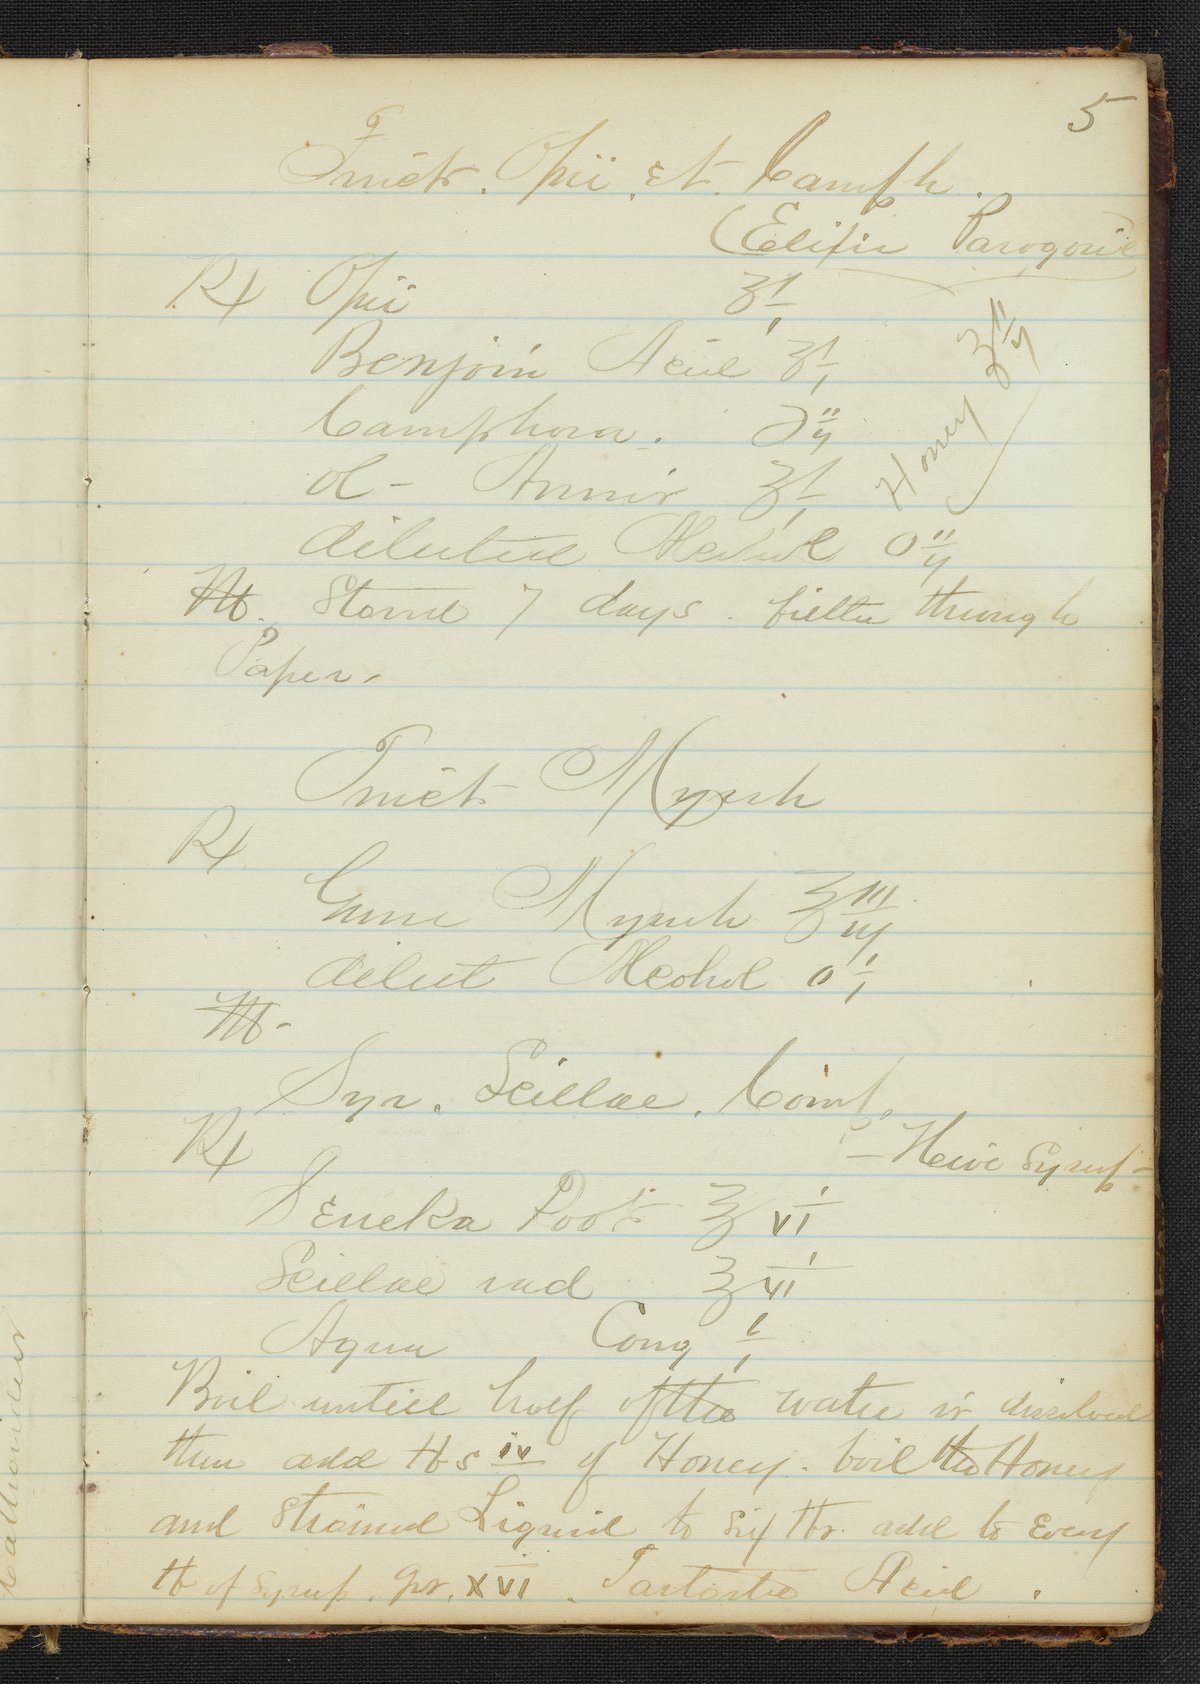 5
Tinctr. Opii. et. Camph.
(Elixir Paregoric
Rx Opii ʒ i
Benjoin Acid ʒ i
Camphora. ℈ ii
ol - Annis ʒ i
Honey ℥ ii
diluted Alcohol O ii
M. Stand 7 days. filter through
Paper.
Tinct. Myrrh
Rx
Gum Myrrh ℥ iii
dilut Alcohol O i
M -
Syr. Scillae. Comp.
- Heive Syrup -
Rx
Seneka Root ℥ vi
Scillae rad ℥ vi
Aqua Cong i
Boil untill half of the water is dissolved
then add ℔s iv of Honey. boil the Honey
and Strained Liquid to Six ℔s. add to Every
℔ of Syrup. grs. xvi. Tartarte Acid.